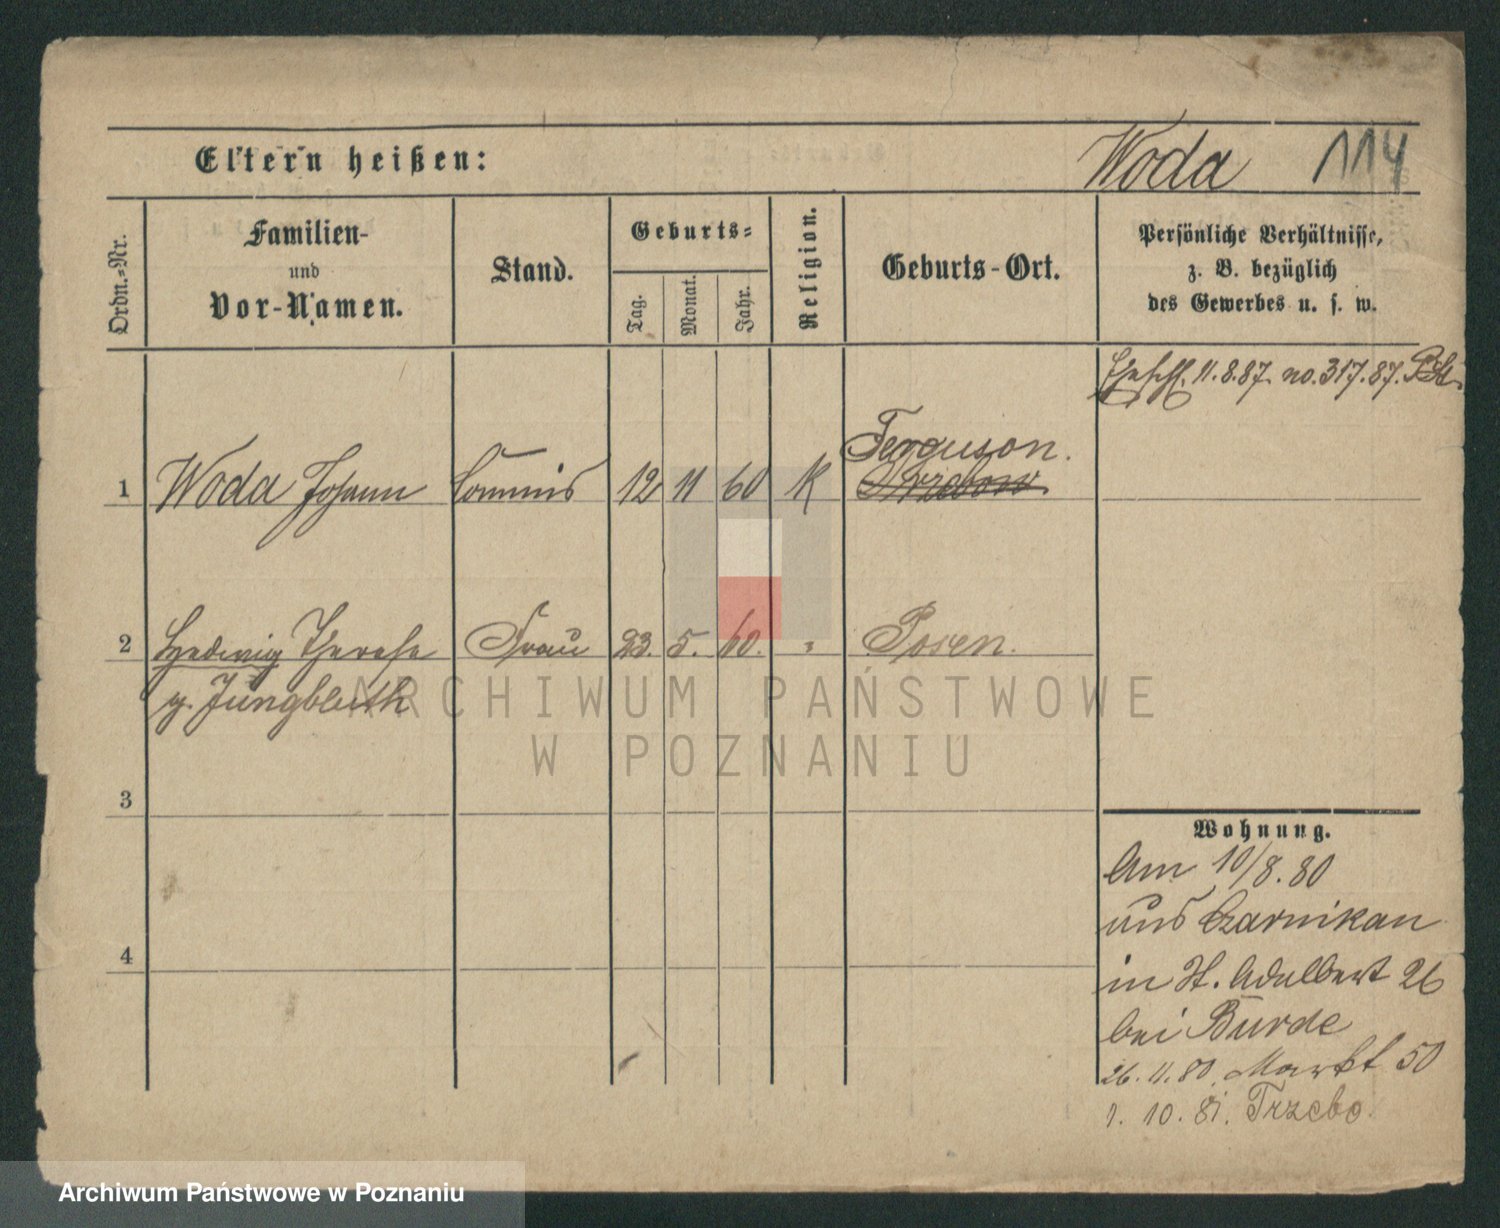 Eltern heißen:
Woda 114
Ordn.=Nr.
Familien-
und
Vor-Namen.
Stand.
Geburts=
Tag.
Monat.
Jahr.
Religion.
Geburts-Ort.
Persönliche Verhältnisse,
z. B. bezüglich
des Gewerbes u. s. w.
11.8.87. no. 317.87.
Ferguson.
1 Woda Johann Commis 12 11 60 K Trzebow
2 Hedwig Therese Frau 23. 5. 60. " Posen.
g. Jungbluth
3
4
Wohnung.
Am 10/8. 80
aus Czarnikau
in St. Adalbert 26
bei Burde
26. 11. 80. Markt 50
1. 10. 81. Trzebo.
ARCHIWUM PAŃSTWOWE
W POZNANIU
Archiwum Państwowe w Poznaniu